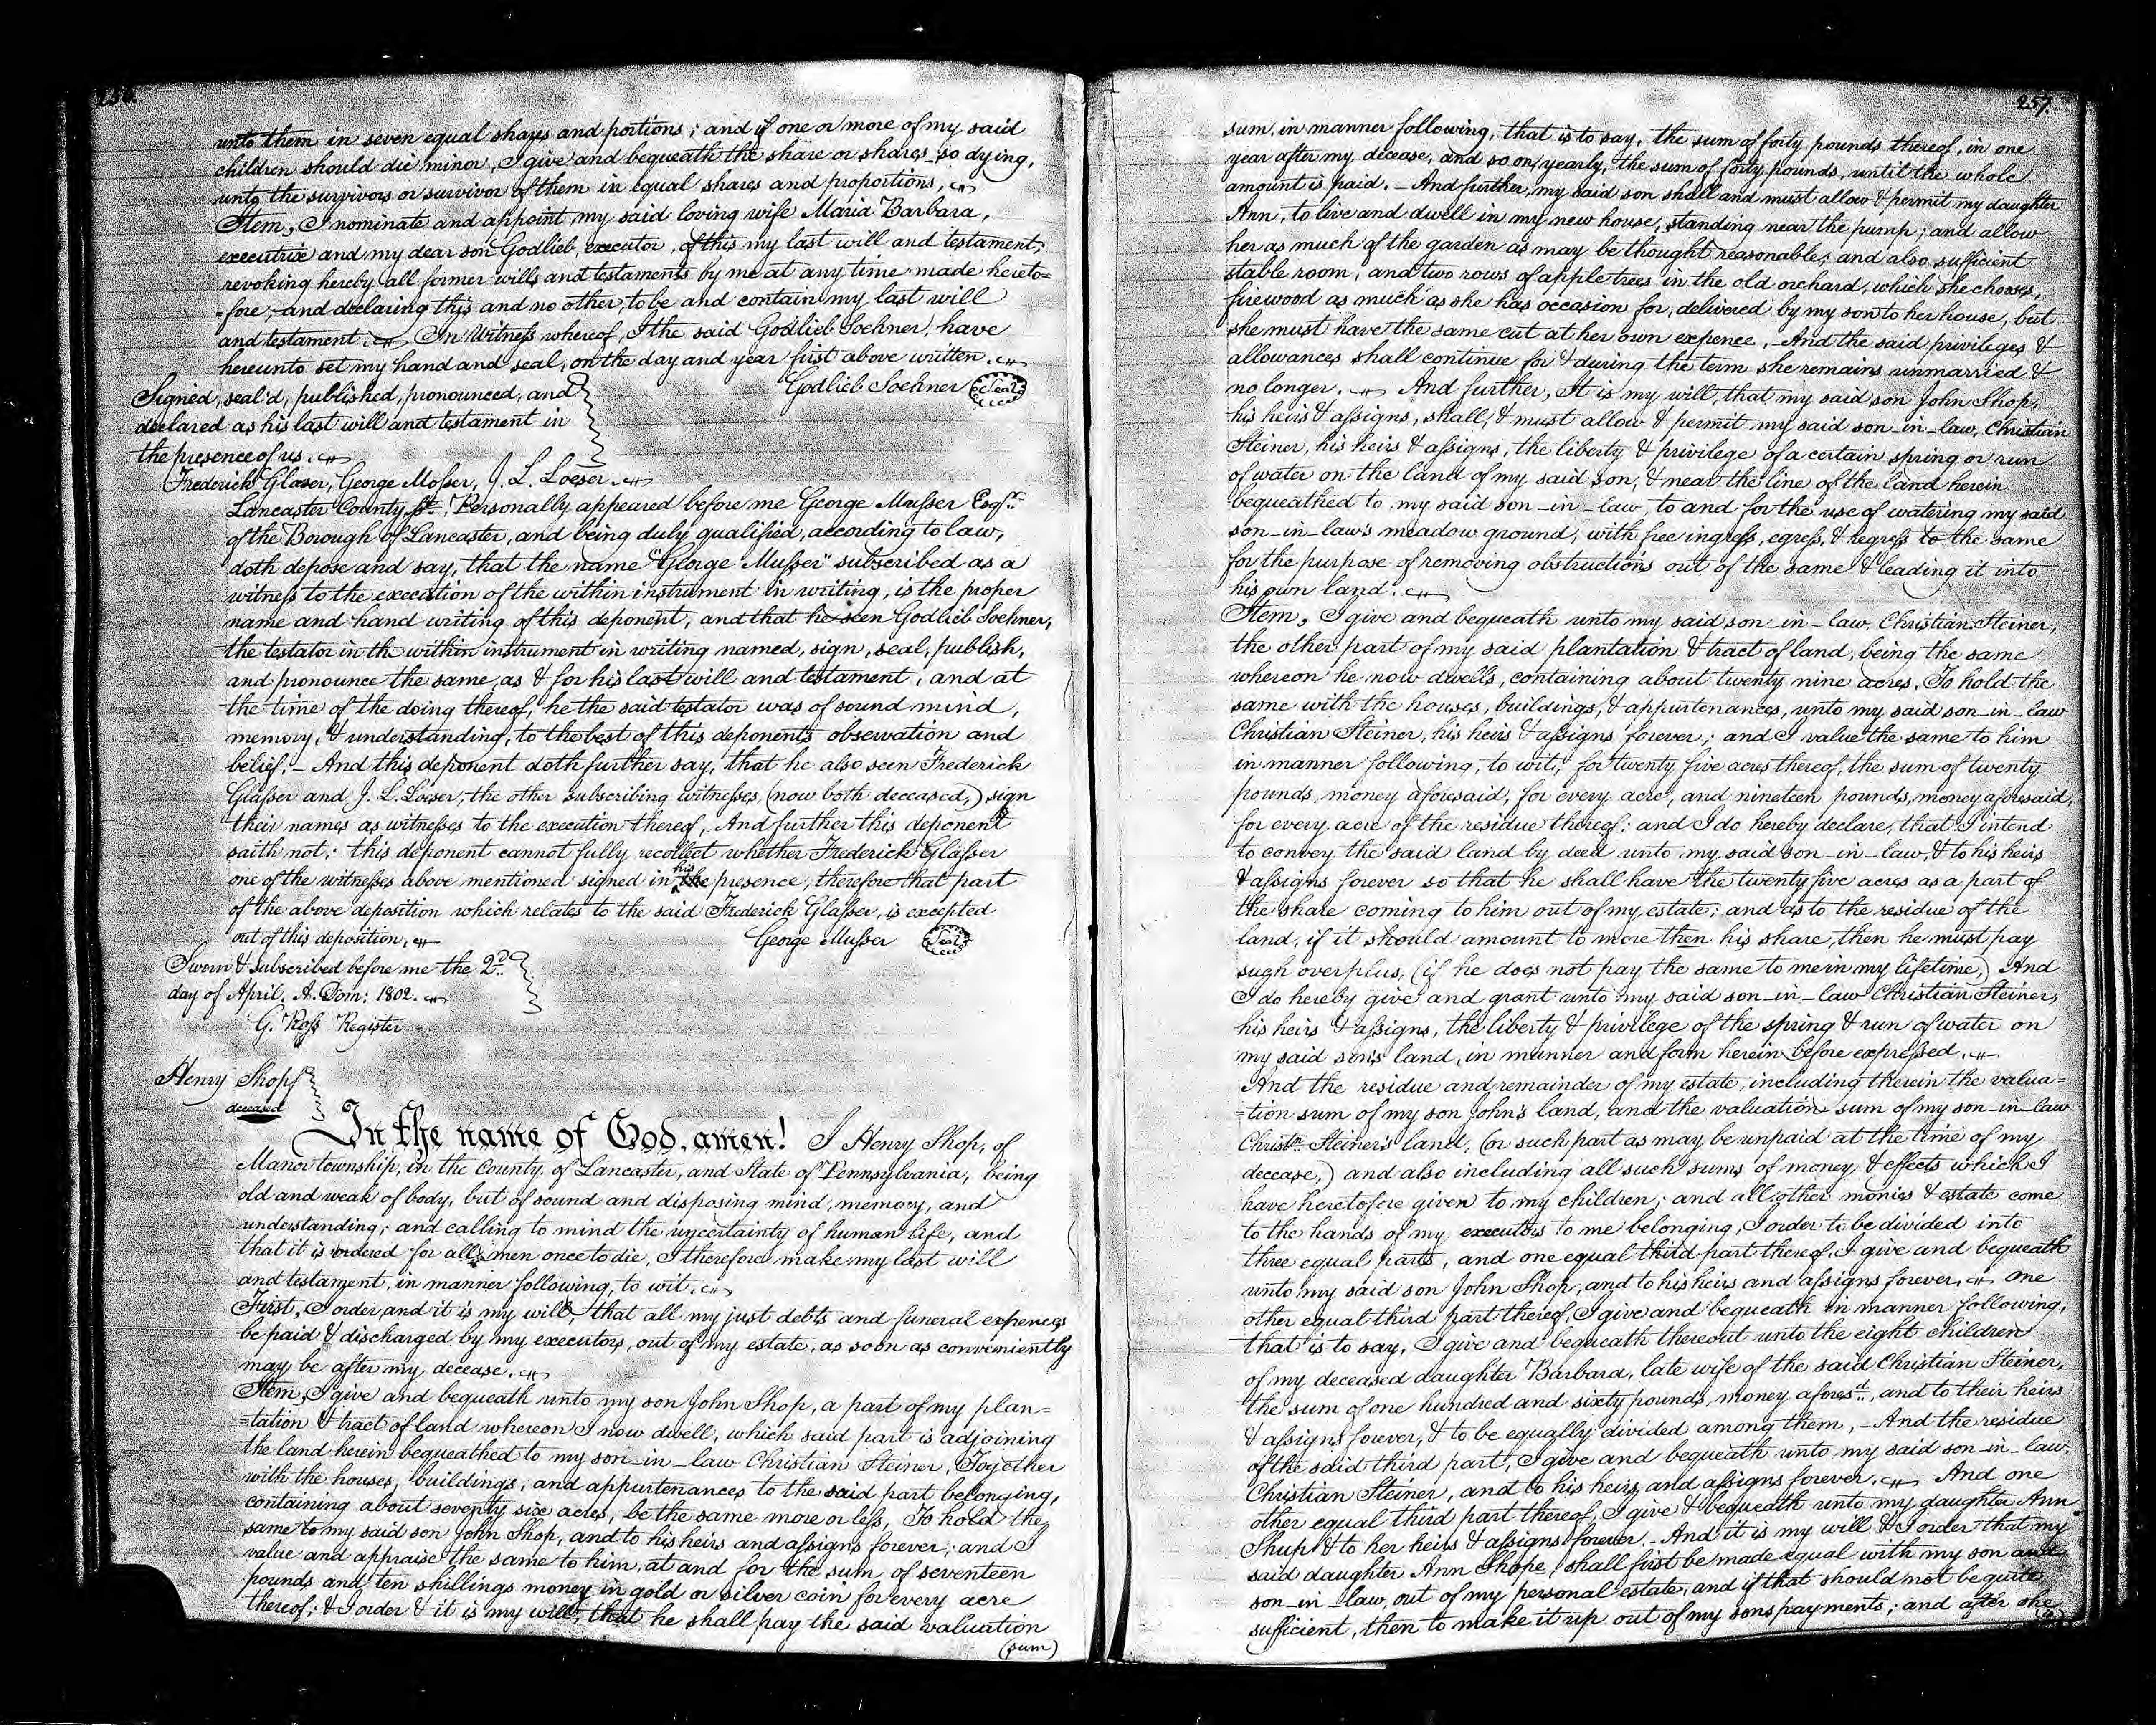 256.
unto them in seven equal shares and portions; and if one or more of my said
children should die minor, I give and bequeath the share or shares so dying,
unto the survivors or survivor of them in equal shares and proportions,
Item, I nominate and appoint my said loving wife Maria Barbara,
executrix and my dear son Godlieb, executor, of this my last will and testament;
revoking hereby all former wills and testaments by me at any time made hereto=
=fore, and declaring this and no other, to be and contain my last will
and testament. In Witness whereof, I the said Godlieb Soehner, have
hereunto set my hand and seal, on the day and year first above written.
Signed, seal'd, published, pronounced, and
Godlieb Soehner Seal
declared as his last will and testament in
the presence of us.
Frederick Glaser, George Mosser, J. L. Loeser.
Lancaster County Ss. Personally appeared before me George Musser Esqr.
of the Borough of Lancaster, and being duly qualified, according to law,
doth depose and say, that the name "George Musser" subscribed as a
witness to the execution of the within instrument in writing, is the proper
name and hand writing of this deponent, and that he seen Godlieb Soehner,
the testator in the within instrument in writing named, sign, seal, publish,
and pronounce the same, as & for his last will and testament, and at
the time of the doing thereof, he the said testator was of sound mind,
memory, & understanding, to the best of this deponent's observation and
belief. - And this deponent doth further say, that he also seen Frederick
Glasser and J. L. Loeser, the other subscribing witnesses, (now both deceased,) sign
their names as witnesses to the execution thereof, And further this deponent
saith not; this deponent cannot fully recollect whether Frederick Glasser
one of the witnesses above mentioned signed in his the presence, therefore that part
of the above deposition which relates to the said Frederick Glasser, is excepted
out of this deposition.
George Musser Seal
Sworn & subscribed before me the 2d.
day of April. A. Dom: 1802.
G. Ross Register
Henry Shopf
deceased
In the name of God, amen! I Henry Shop, of
Manor township, in the County of Lancaster, and State of Pennsylvania, being
old and weak of body, but of sound and disposing mind, memory, and
understanding; and calling to mind the uncertainty of human life, and
that it is ordered for all men once to die, I therefore make my last will
and testament, in manner following, to wit.
First, I order and it is my will, that all my just debts and funeral expences
be paid & discharged by my executors, out of my estate, as soon as conveniently
may be after my decease.
Item, I give and bequeath unto my son John Shop, a part of my plan=
=tation & tract of land whereon I now dwell, which said part is adjoining
the land herein bequeathed to my son-in-law Christian Steiner, Together
with the houses, buildings, and appurtenances to the said part belonging,
containing about seventy six acres, be the same more or less, To hold the
same to my said son John Shop, and to his heirs and assigns forever; and I
value and appraise the same to him, at and for the sum of seventeen
pounds and ten shillings money in gold or silver coin for every acre
thereof; & I order & it is my will, that he shall pay the said valuation
(sum)
257.
sum, in manner following, that is to say, the sum of forty pounds thereof, in one
year after my decease, and so on, yearly, the sum of forty pounds, until the whole
amount is paid. - And further, my said son shall and must allow & permit my daughter
Ann, to live and dwell in my new house, standing near the pump; and allow
her as much of the garden as may be thought reasonable; and also sufficient
stable room, and two rows of apple trees in the old orchard, which she chooses,
firewood as much as she has occasion for, delivered by my son to her house, but
she must have the same cut at her own expence, - And the said privileges &
allowances shall continue for & during the term she remains unmarried &
no longer. And further, It is my will, that my said son John Shop,
his heirs & assigns, shall, & must allow & permit my said son-in-law, Christian
Steiner, his heirs & assigns, the liberty & privilege of a certain spring or run
of water on the land of my said son, & near the line of the land herein
bequeathed to my said son-in-law, to and for the use of watering my said
son-in-law's meadow ground, with free ingress, egress, & regress to the same
for the purpose of removing obstructions out of the same & leading it into
his own land.
Item, I give and bequeath unto my said son-in-law, Christian Steiner,
the other part of my said plantation & tract of land, being the same
whereon he now dwells, containing about twenty nine acres, To hold the
same with the houses, buildings, & appurtenances, unto my said son-in-law
Christian Steiner, his heirs & assigns forever; and I value the same to him
in manner following, to wit, for twenty five acres thereof, the sum of twenty
pounds, money aforesaid, for every acre, and nineteen pounds, money aforesaid,
for every acre of the residue thereof; and I do hereby declare, that I intend
to convey the said land by deed unto my said son-in-law, & to his heirs
& assigns forever so that he shall have the twenty five acres as a part of
the share coming to him out of my estate; and as to the residue of the
land, if it should amount to more then his share, then he must pay
sugh overplus, (if he does not pay the same to me in my lifetime,) And
I do hereby give and grant unto my said son-in-law Christian Steiner,
his heirs & assigns, the liberty & privilege of the spring & run of water on
my said son's land, in manner and form herein before expressed.
And the residue and remainder of my estate, including therein the valua=
=tion sum of my son John's land, and the valuation sum of my son-in-law
Christn. Steiner's land, (or such part as may be unpaid at the time of my
decease,) and also including all such sums of money & effects which I
have heretofore given to my children; and all other monies & estate come
to the hands of my executors to me belonging, I order to be divided into
three equal parts, and one equal third part thereof, I give and bequeath
unto my said son John Shop, and to his heirs and assigns forever, one
other equal third part thereof, I give and bequeath in manner following,
that is to say, I give and bequeath thereout unto the eight children
of my deceased daughter Barbara, late wife of the said Christian Steiner,
the sum of one hundred and sixty pounds, money aforesd., and to their heirs
& assigns forever, & to be equally divided among them, - And the residue
of the said third part, I give and bequeath unto my said son-in-law,
Christian Steiner, and to his heirs and assigns forever. And one
other equal third part thereof, I give & bequeath unto my daughter Ann
Shup & to her heirs & assigns forever. - And it is my will & I order that my
said daughter Ann Shope, shall first be made equal with my son and
son-in-law, out of my personal estate, and if that should not be quite
sufficient, then to make it up out of my sons payments; and after she